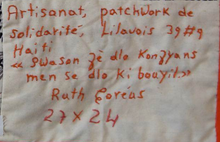 Artisanat, patchwork de
solidarité, Lilavois 39#9
Haïti
« Pwason zé dlo Konzyans
men se dlo ki bouyit.»
Ruth Goréas
27 x 24